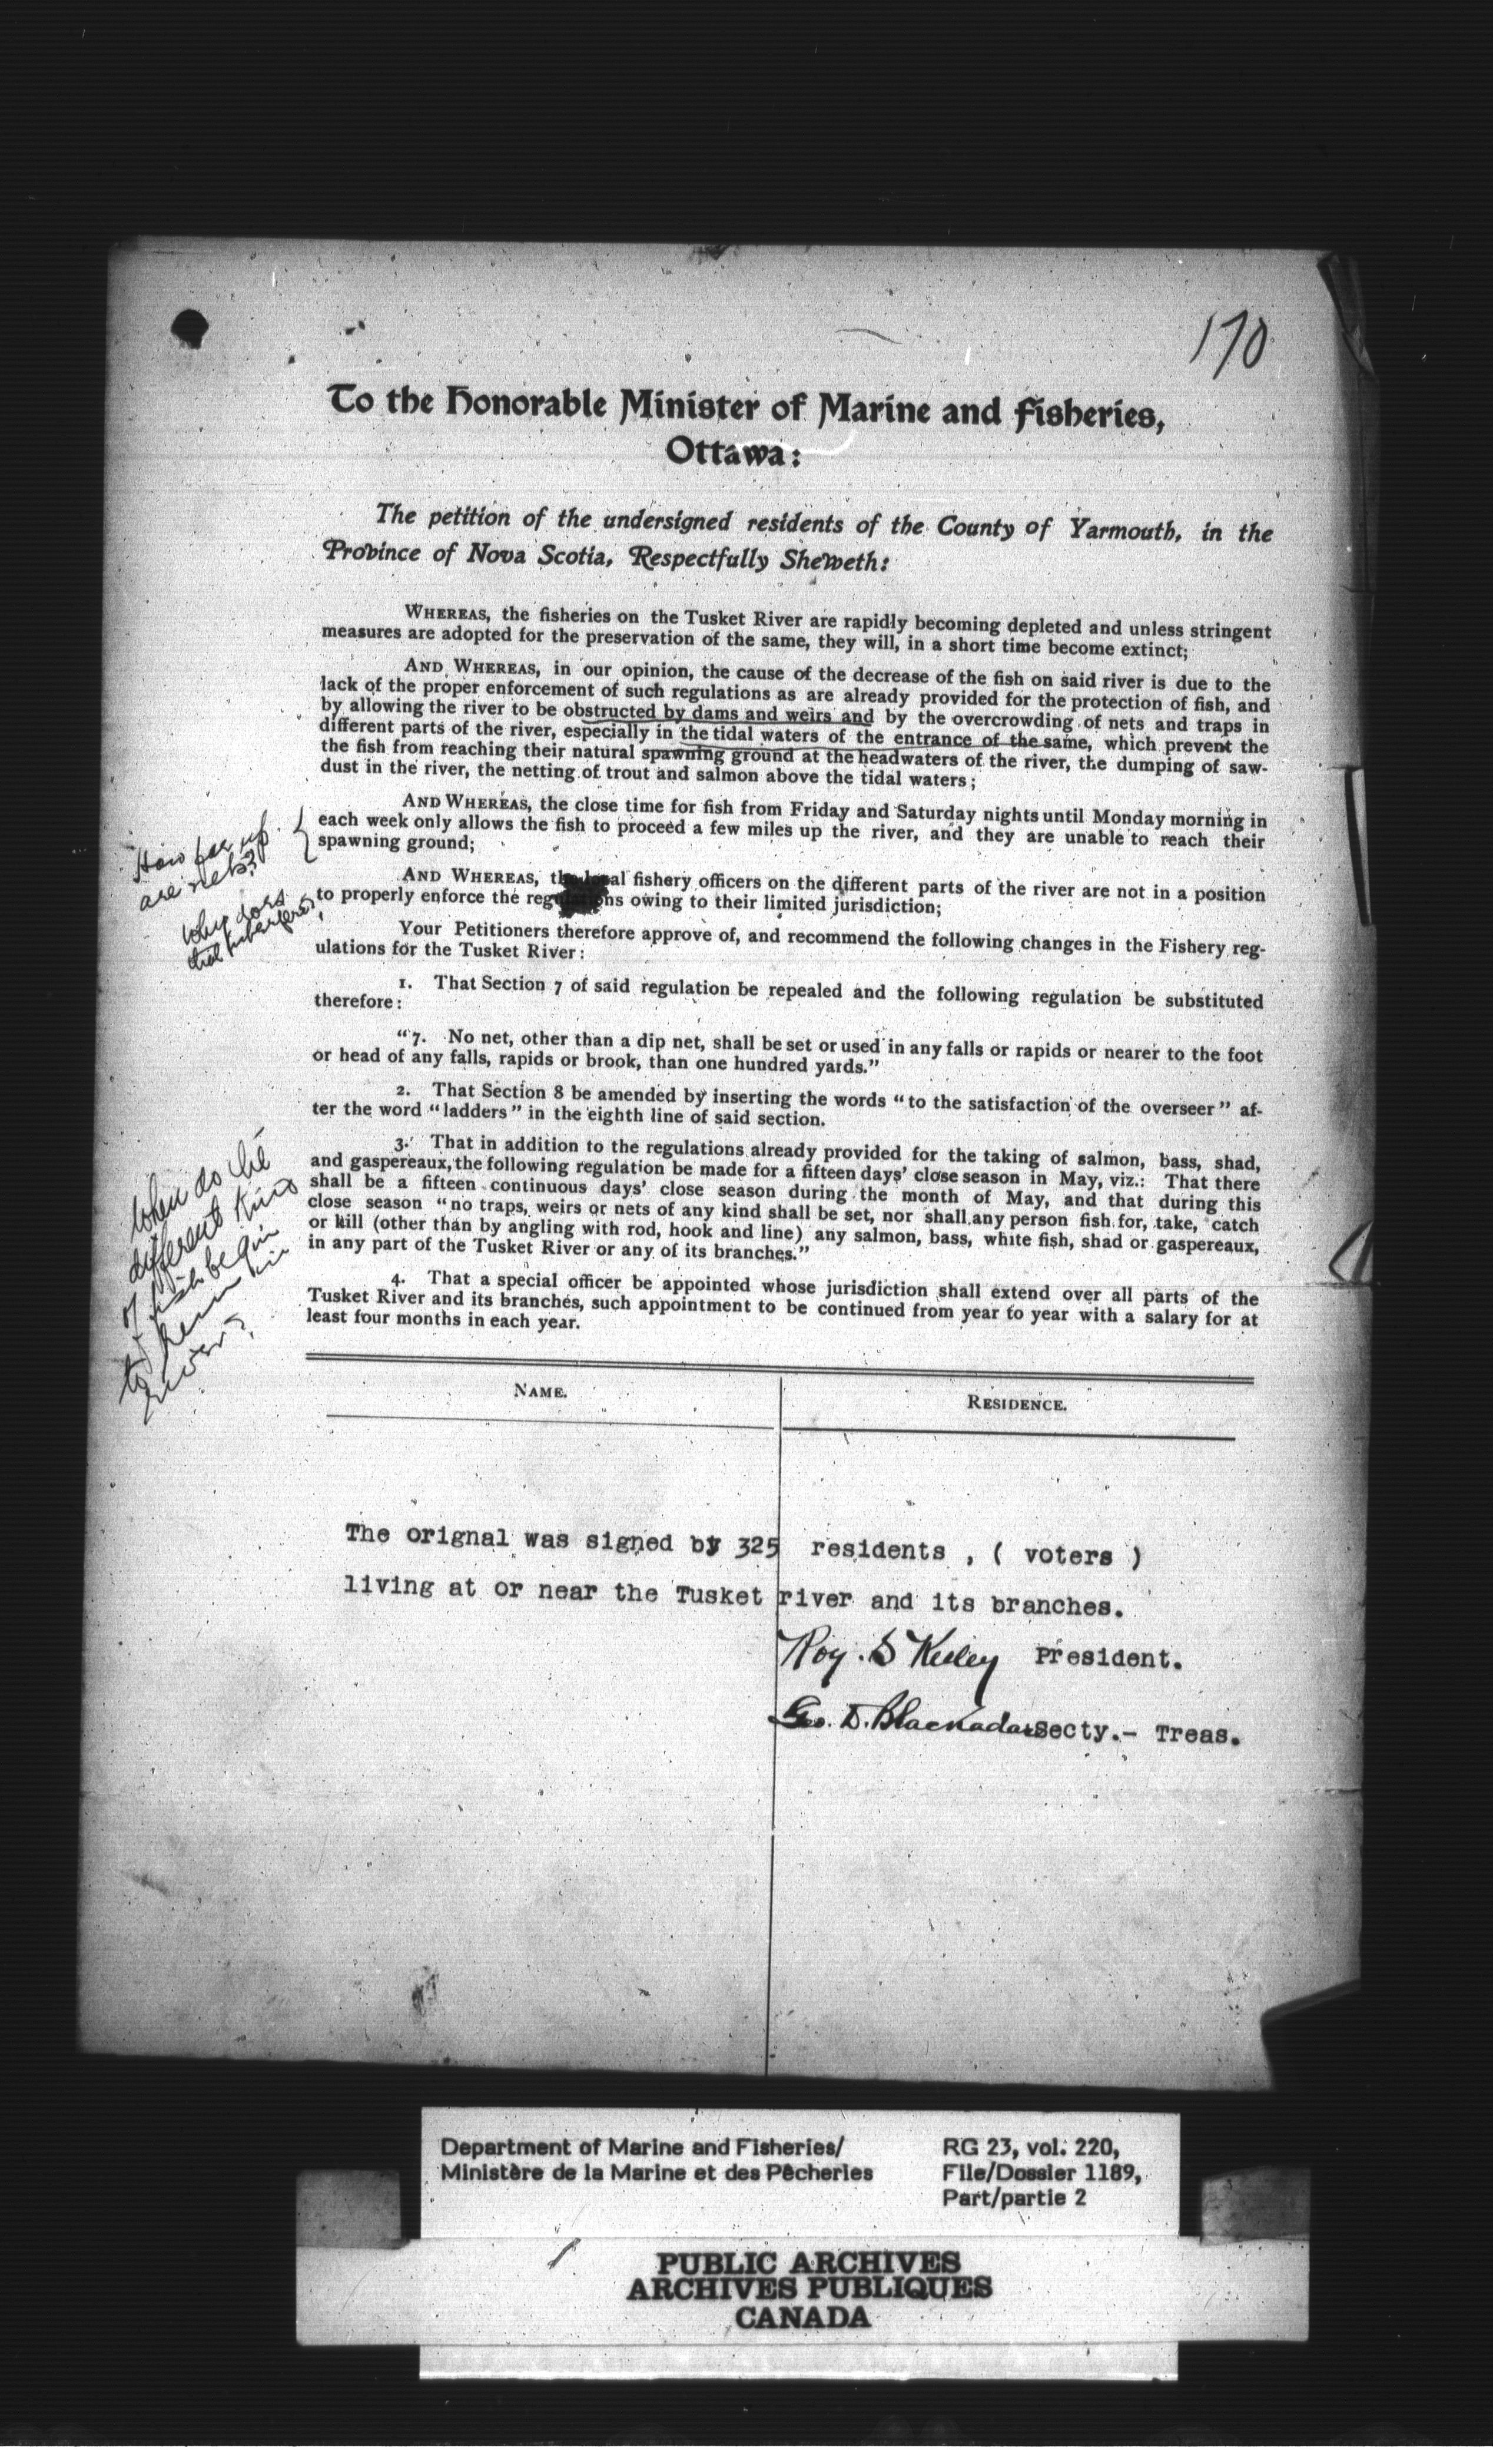 170
To the Honorable Minister of Marine and Fisheries,
Ottawa:
The petition of the undersigned residents of the County of Yarmouth, in the
Province of Nova Scotia, Respectfully Sheweth:
WHEREAS, the fisheries on the Tusket River are rapidly becoming depleted and unless stringent
measures are adopted for the preservation of the same, they will, in a short time become extinct;
AND WHEREAS, in our opinion, the cause of the decrease of the fish on said river is due to the
lack of the proper enforcement of such regulations as are already provided for the protection of fish, and
by allowing the river to be obstructed by dams and weirs and by the overcrowding of nets and traps in
different parts of the river, especially in the tidal waters of the entrance of the same, which prevent the
the fish from reaching their natural spawning ground at the headwaters of the river, the dumping of saw-
dust in the river, the netting of trout and salmon above the tidal waters;
AND WHEREAS, the close time for fish from Friday and Saturday nights until Monday morning in
each week only allows the fish to proceed a few miles up the river, and they are unable to reach their
spawning ground;
How far up
are nets?
AND WHEREAS, the local fishery officers on the different parts of the river are not in a position
to properly enforce the regulations owing to their limited jurisdiction;
Why does
that
Your Petitioners therefore approve of, and recommend the following changes in the Fishery reg-
ulations for the Tusket River:
1. That Section 7 of said regulation be repealed and the following regulation be substituted
therefore:
"7. No net, other than a dip net, shall be set or used in any falls or rapids or nearer to the foot
or head of any falls, rapids or brook, than one hundred yards."
2. That Section 8 be amended by inserting the words "to the satisfaction of the overseer" af-
ter the word "ladders" in the eighth line of said section.
3. That in addition to the regulations already provided for the taking of salmon, bass, shad,
and gaspereaux, the following regulation be made for a fifteen days' close season in May, viz.: That there
shall be a fifteen continuous days' close season during the month of May, and that during this
close season "no traps, weirs or nets of any kind shall be set, nor shall any person fish for, take, catch
or kill (other than by angling with rod, hook and line) any salmon, bass, white fish, shad or gaspereaux,
in any part of the Tusket River or any of its branches."
When do the
different kinds
of fish begin
to run in
river?
4. That a special officer be appointed whose jurisdiction shall extend over all parts of the
Tusket River and its branches, such appointment to be continued from year to year with a salary for at
least four months in each year.
NAME. RESIDENCE.
The orignal was signed by 325 residents , ( voters )
living at or near the Tusket river and its branches.
Roy. S Kelley President.
Geo. D. Blackadar Secty.- Treas.
Department of Marine and Fisheries/
Ministère de la Marine et des Pêcheries
RG 23, vol. 220,
File/Dossier 1189,
Part/partie 2
PUBLIC ARCHIVES
ARCHIVES PUBLIQUES
CANADA